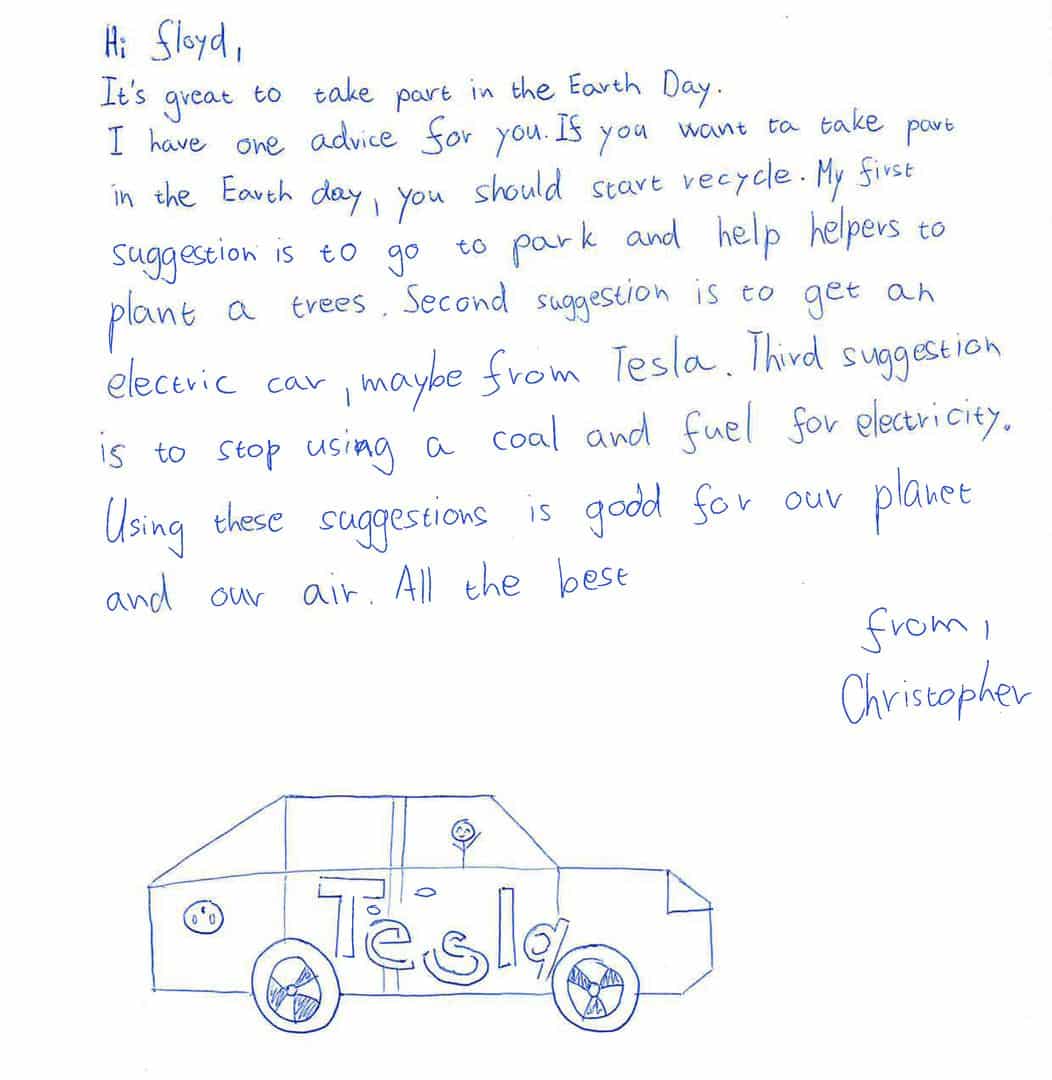 Hi floyd,
It's great to take part in the Earth Day.
I have one advice for you. If you want ta take part
in the Earth day, you should start recycle. My first
suggestion is to go to park and help helpers to
plant a trees. Second suggestion is to get an
electric car, maybe from Tesla. Third suggestion
is to stop using a coal and fuel for electricity.
Using these suggestions is godd for our planet
and our air. All the best
from,
Christopher
Tesla